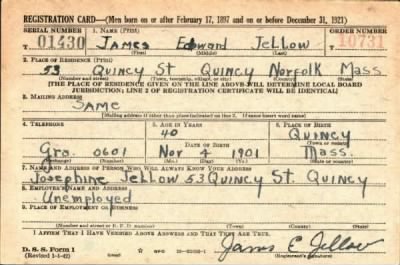 REGISTRATION CARD—(Men born on or after February 17, 1897 and on or before December 31, 1921)
SERIAL NUMBER
1. NAME (Print)
ORDER NUMBER
T 01430
JAMES Edward Jellow
10731
(First) (Middle) (Last)
2. PLACE OF RESIDENCE (Print)
53 Quincy St Quincy Norfolk Mass
(Number and street) (Town, township, village, or city) (County) (State)
[THE PLACE OF RESIDENCE GIVEN ON THE LINE ABOVE WILL DETERMINE LOCAL BOARD
JURISDICTION; LINE 2 OF REGISTRATION CERTIFICATE WILL BE IDENTICAL]
3. MAILING ADDRESS
SAME
[Mailing address if other than place indicated on line 2. If same insert word same]
4. TELEPHONE
5. AGE IN YEARS
6. PLACE OF BIRTH
40
Quincy
DATE OF BIRTH
(Town or county)
Gra. 0601
Nov 4 1901
Mass.
(Mo.) (Day) (Yr.)
(State or country)
7. NAME AND ADDRESS OF PERSON WHO WILL ALWAYS KNOW YOUR ADDRESS
Josephine Jellow 53 Quincy St. Quincy
8. EMPLOYER'S NAME AND ADDRESS
Unemployed
9. PLACE OF EMPLOYMENT OR BUSINESS
(Number and street or R. F. D. number) (Town) (County) (State)
I AFFIRM THAT I HAVE VERIFIED ABOVE ANSWERS AND THAT THEY ARE TRUE.
D. S. S. Form 1
(Revised 1-1-42)
James E Jellow
(Registrant's signature)